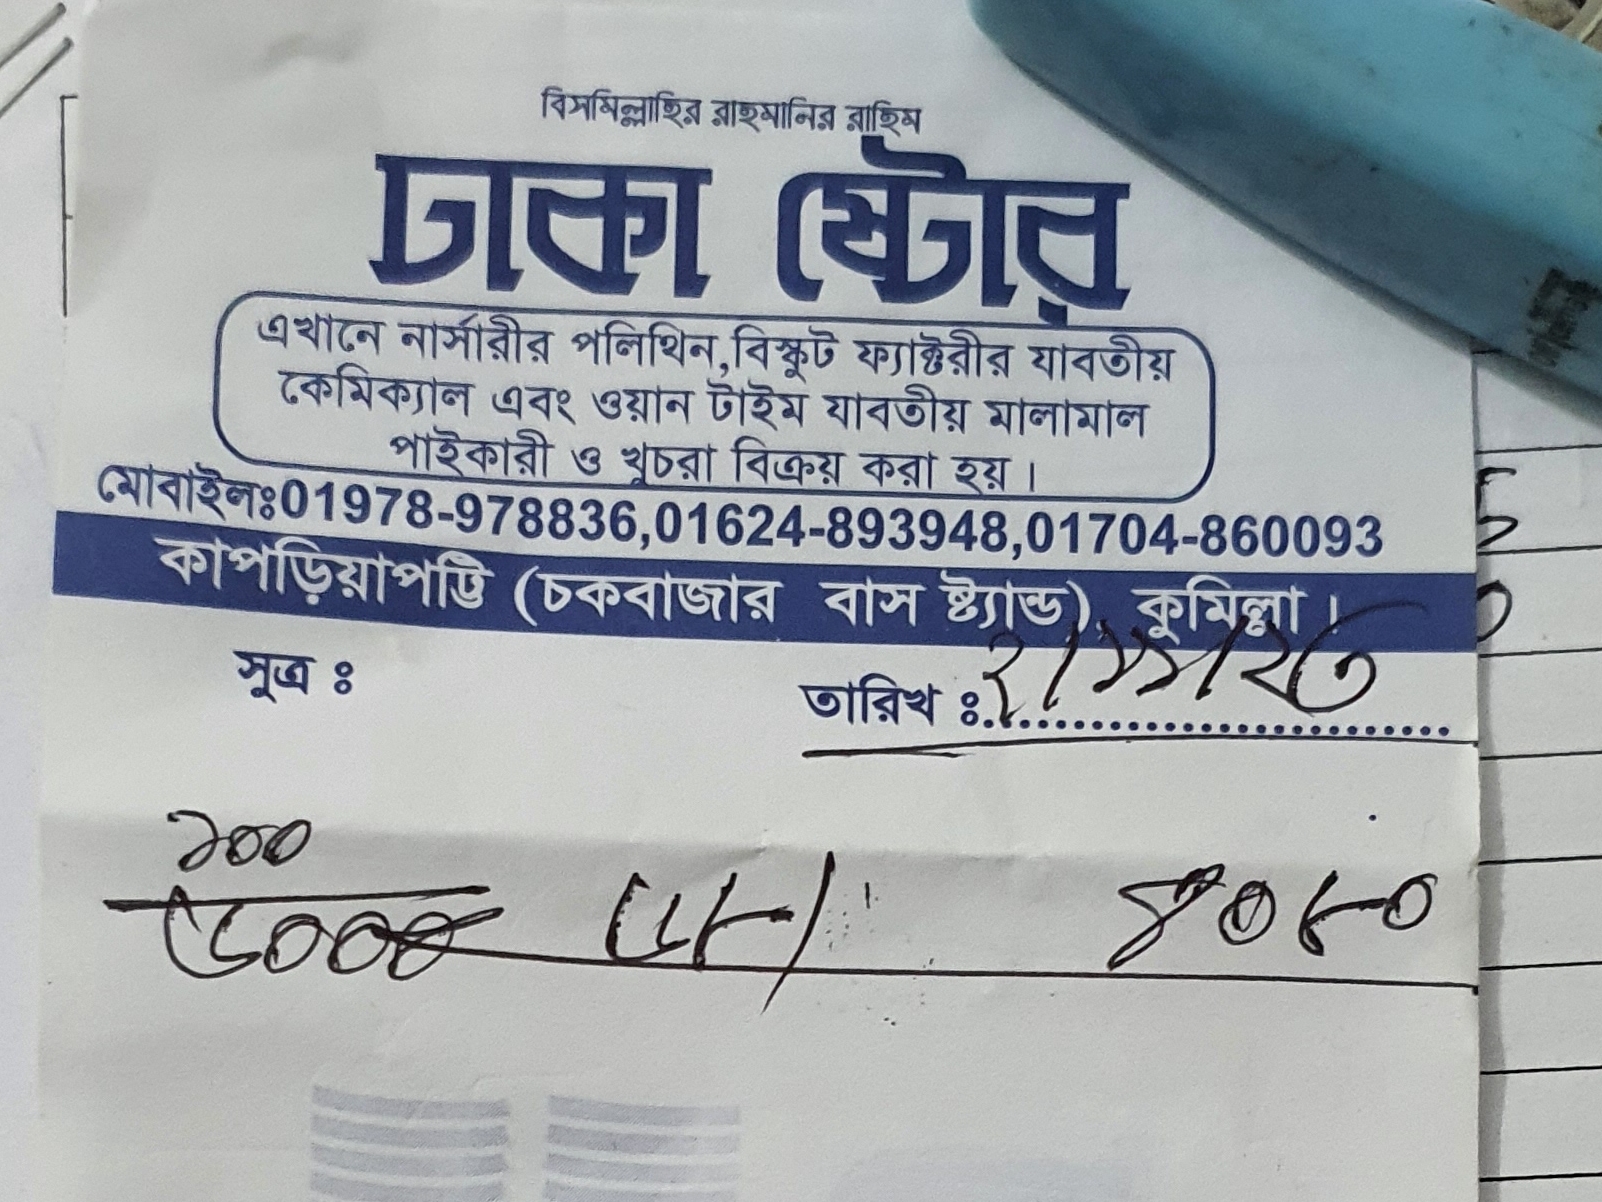 বিসমিল্লাহির রাহমানির রাহিম
ঢাকা ষ্টোর
এখানে নার্সারীর পলিথিন,বিস্কুট ফ্যাক্টরীর যাবতীয়
কেমিক্যাল এবং ওয়ান টাইম যাবতীয় মালামাল
পাইকারী ও খুচরা বিক্রয় করা হয়।
মোবাইলঃ01978-978836,01624-893948,01704-860093
কাপড়িয়াপট্টি (চকবাজার বাস ষ্ট্যান্ড), কুমিল্লা।
সুত্র ঃ
তারিখ ঃ
১০০